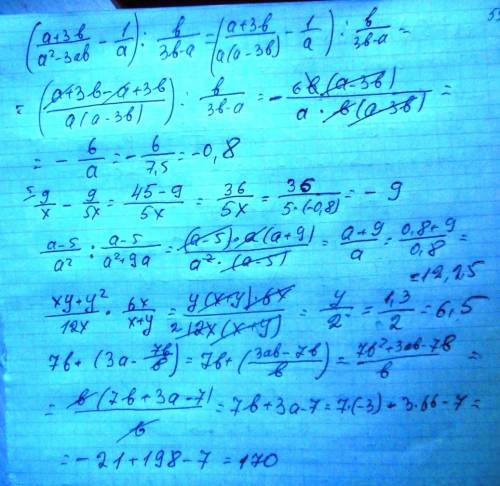 (a+3b/a²-3ab - 1/a) : b/3b-a = (a+3b/a(a-3b) - 1/a) : b/3b-a =
= (a+3b-a+3b/a(a-3b)) : b/3b-a = - 6b(a-3b)/a·b(a-3b) =
= - 6/a = - 6/7,5 = -0,8
5 9/x - 9/5x = 45-9/5x = 36/5x = 36/5·(-0,8) = - 9
a-5/a² : a-5/a²+9a = (a-5)·a(a+9)/a²·(a-5) = a+9/a = 0,8+9/0,8 =
= 12,25
xy+y²/12x · 6x/x+y = y(x+y)·6x/2 12x(x+y) = y/2 = 1,3/2 = 6,5
7b + (3a - 7b/b) = 7b + (3ab-7b/b) = 7b²+3ab-7b/b =
= b(7b+3a-7)/b = 7b+3a-7 = 7·(-3) + 3·66 - 7 =
= -21+198-7 = 170